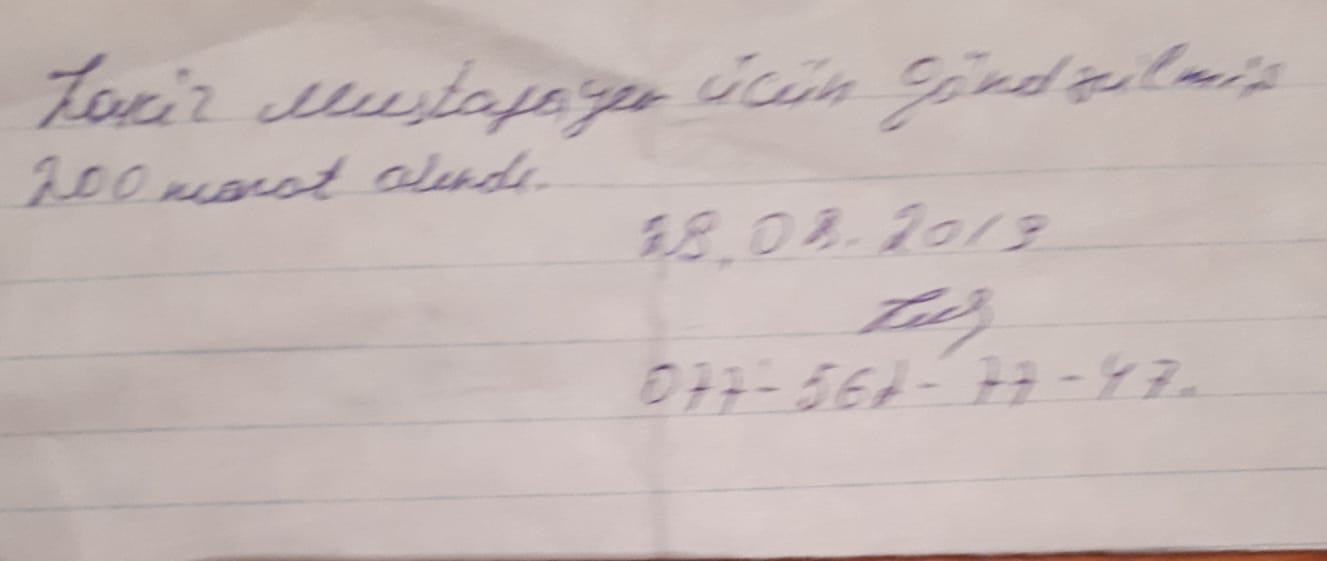 Zakir Mustafayev üçün göndərilmiş
200 manat alındı.
28.08.2019
077-567-77-47.